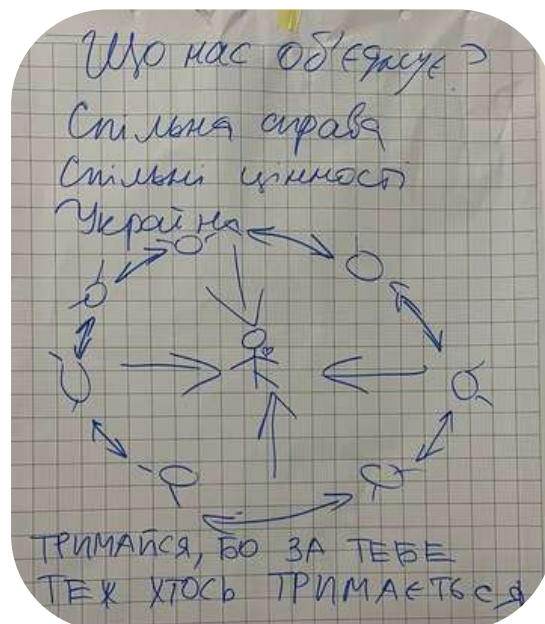 Що нас об'єднує?
Спільна справа
Спільні цінності
Україна
ТРИМАЙСЯ, БО ЗА ТЕБЕ
ТЕЖ ХТОСЬ ТРИМАЄТЬСЯ